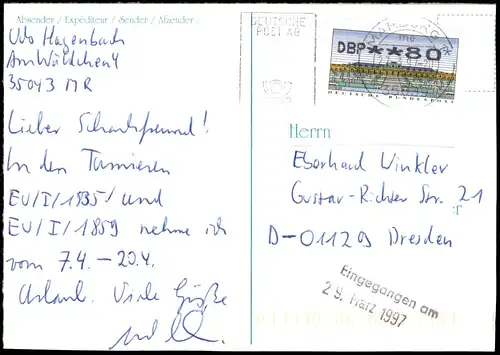 Absender / Expéditeur / Sender / Afzender
Udo Hagenbach
Am Wäldchen 4
35043 MR
Lieber Schachfreund!
In den Turnieren
EU/I/1835/ und
EU/I/1859 nehme ich
vom 7.4. – 20.4.
Urlaub. Viele Grüße
DEUTSCHE
POST AG
DBP**80
DEUTSCHE BUNDESPOST
Herrn
Eberhard Winkler
Gustav-Richter Str. 21
D-01129 Dresden
Eingegangen am
29. März 1997